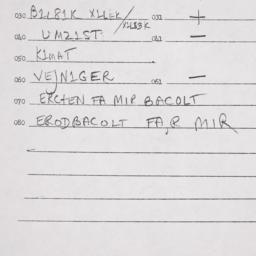 030 B1281K X1LEK/X1LE3K 031 +
040 UMZ1ST. 041 —
050 K1MAT
060 VEJN1GER 061 —
070 ERCHEN FA MIR BACOLT
080 ERODBACOLT FA,R MIR